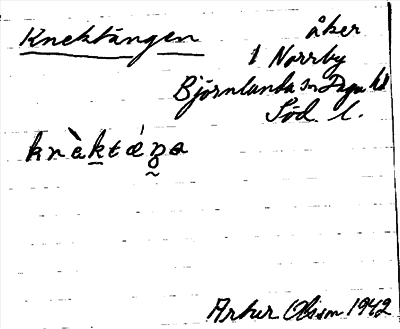 Knektängen
åker
1 Norrby
Björnlunda sn Daga hd
Söd. l.
Artur Olsson 1942